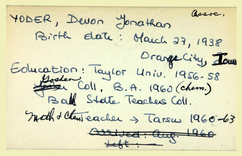 Assoc.
YODER, Devon Jonathan
Birth date: March 27, 1938
Orange City, Iowa
Education: Taylor Univ. 1956-58
Goshen Coll. B.A. 1960 (chem.)
Ball State Teachers Coll.
Math & Chem Teacher → Tarsus 1960-63
Arrived: Aug. 1960
Left: